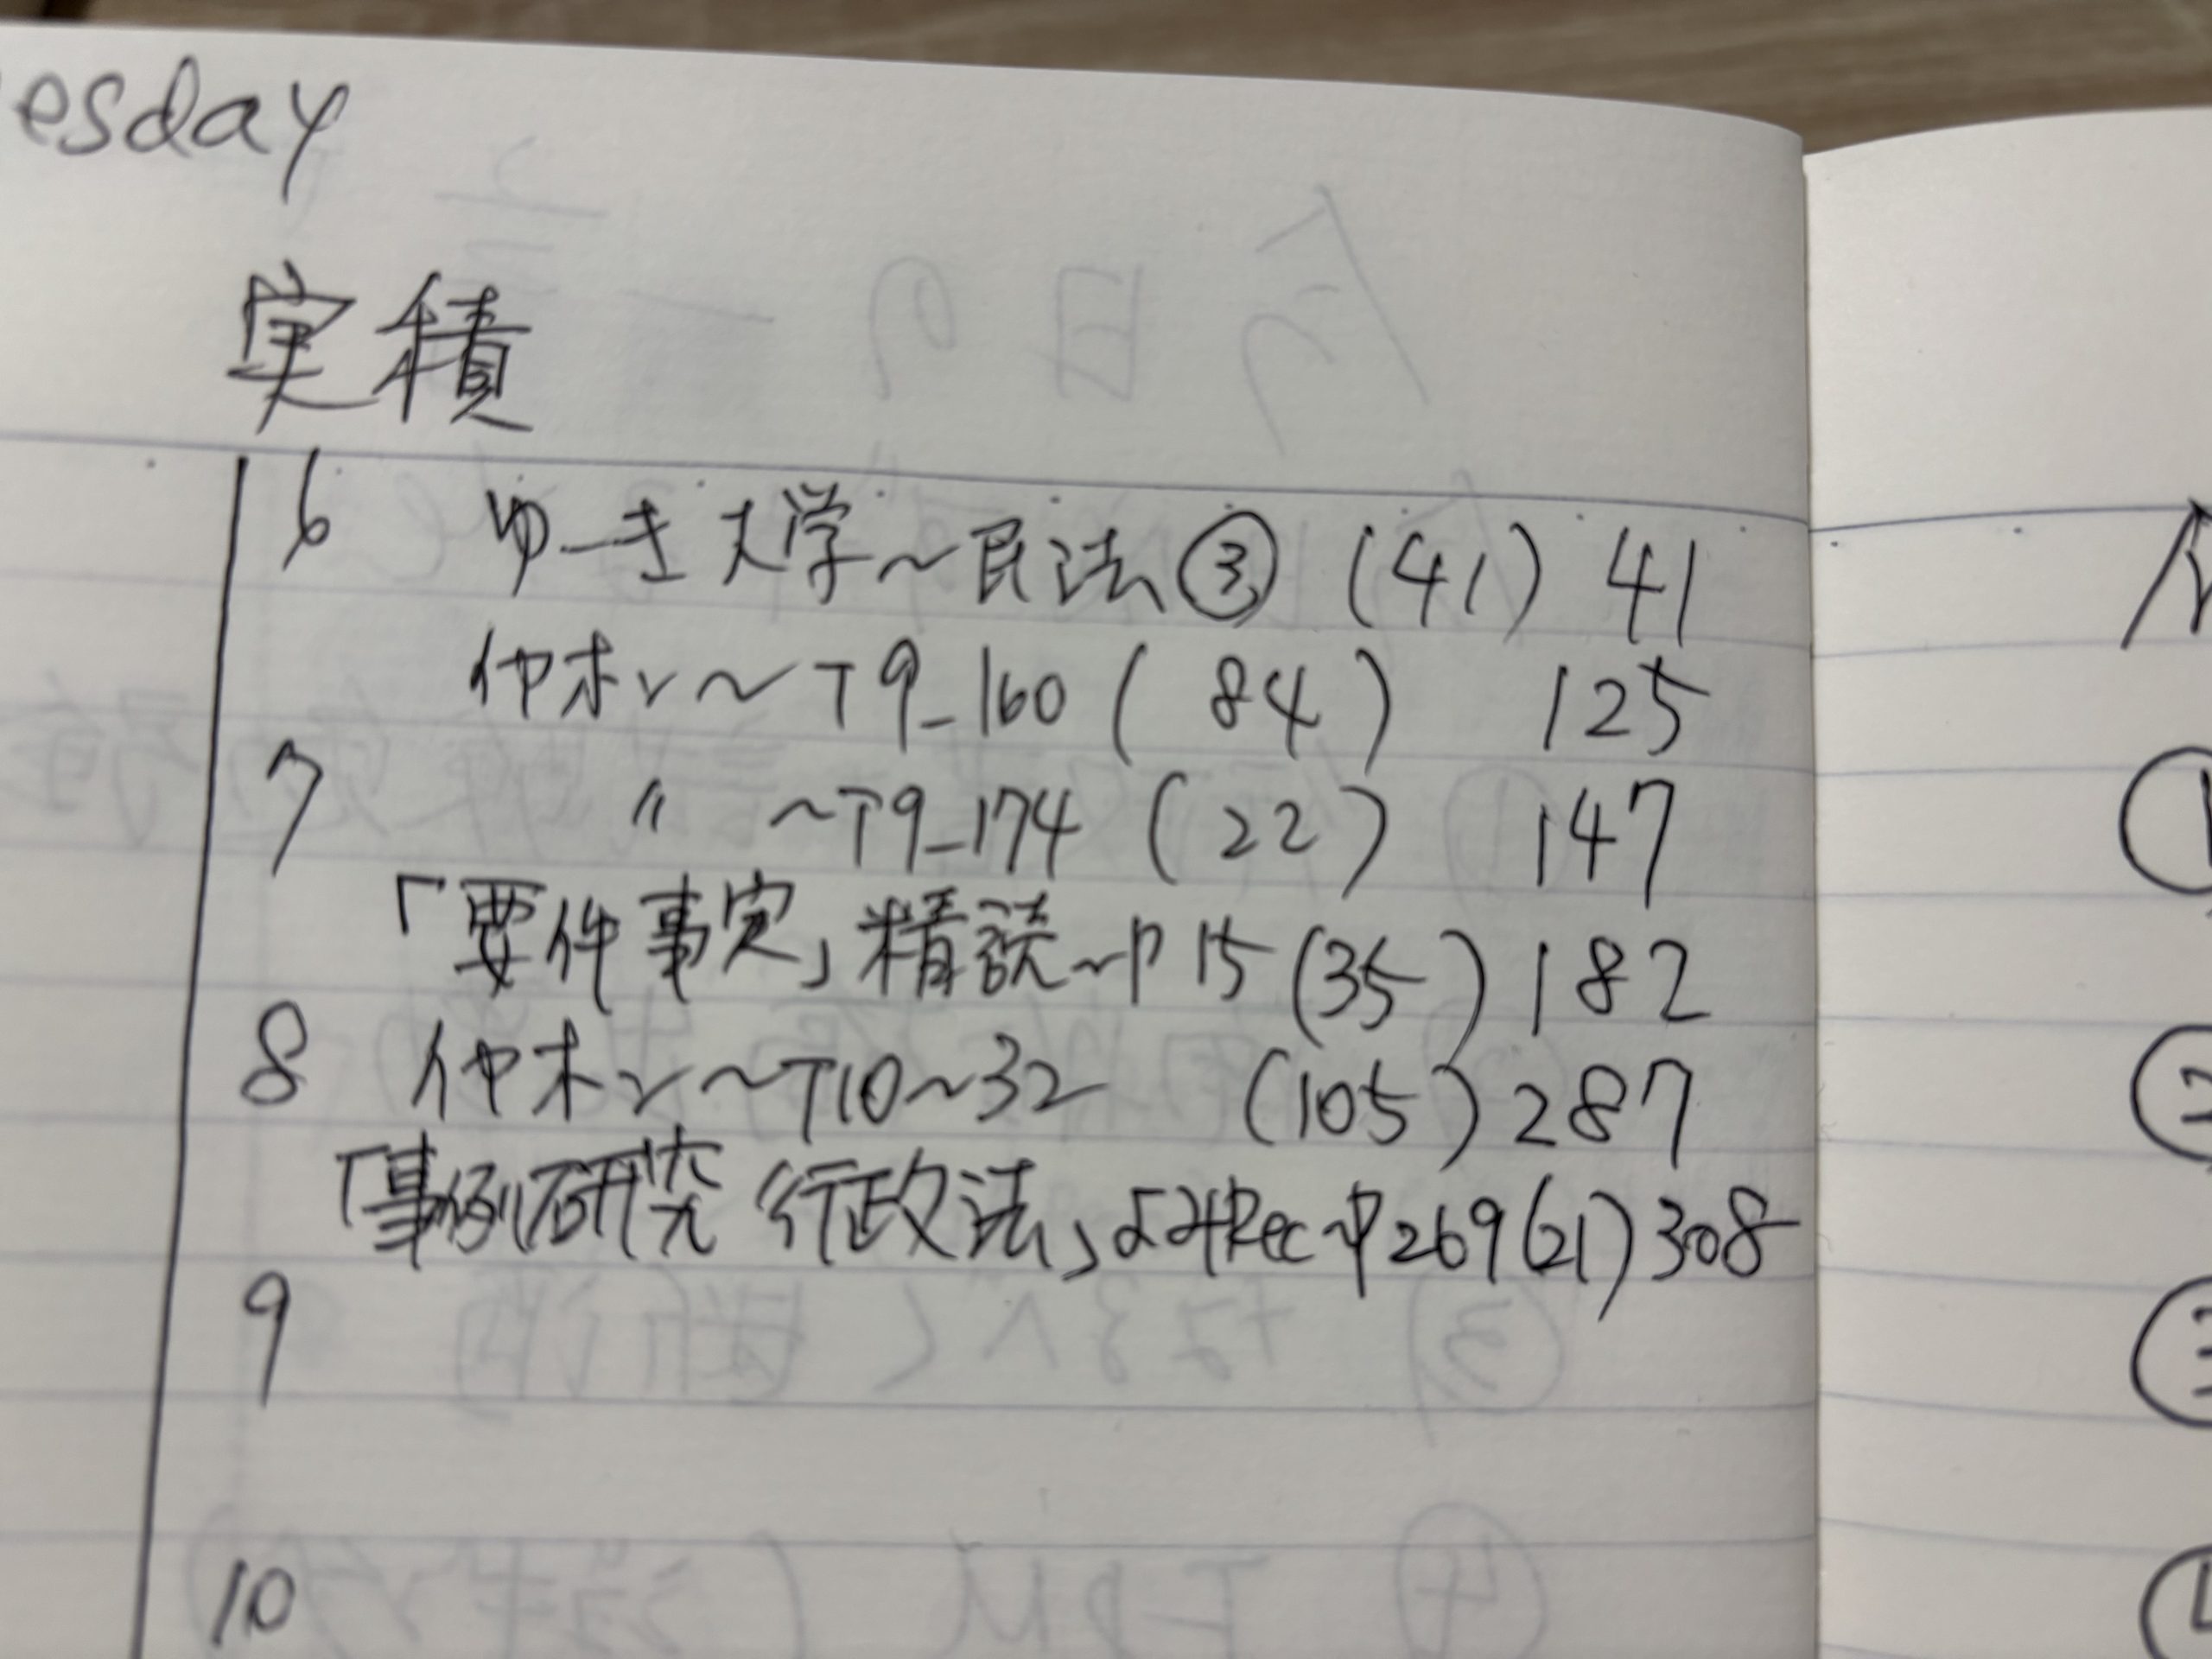 esday
実積
6 ゆーき大学〜民法③ (41) 41
伊ホン〜T9_160 (84) 125
7 〃 〜T9_174 (22) 147
「要件事実」精読〜P15 (35) 182
8 伊ホン〜T10〜32 (105) 287
「事例研究 行政法」よみRec〜P269 (21) 308
9
10
①
②
③
④